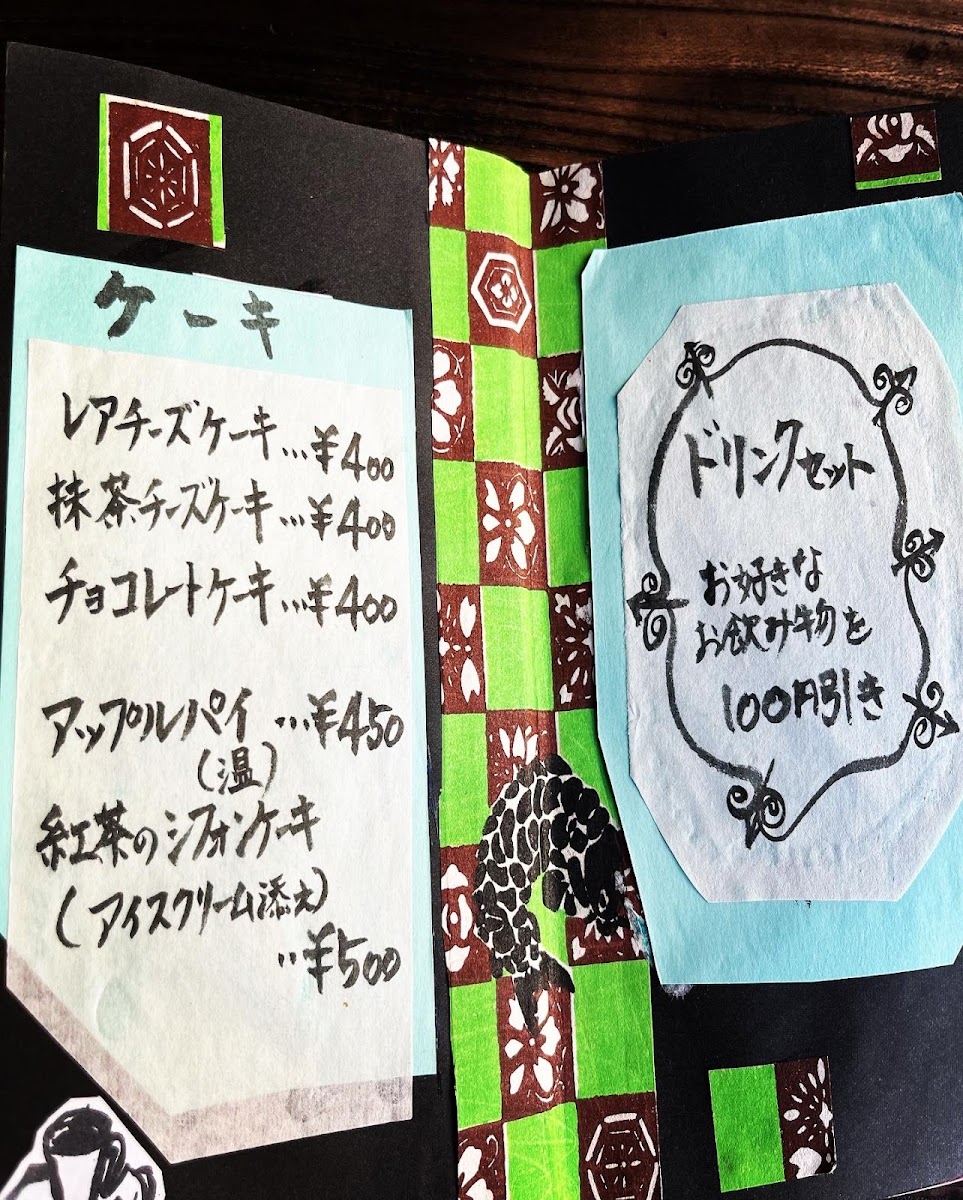 ケーキ
レアチーズケーキ…¥400
抹茶チーズケーキ…¥400
チョコレートケーキ…¥400
アップルパイ…¥450
(温)
紅茶のシフォンケーキ
(アイスクリーム添え)
…¥500
ドリンクセット
お好きな
お飲み物を
100円引き